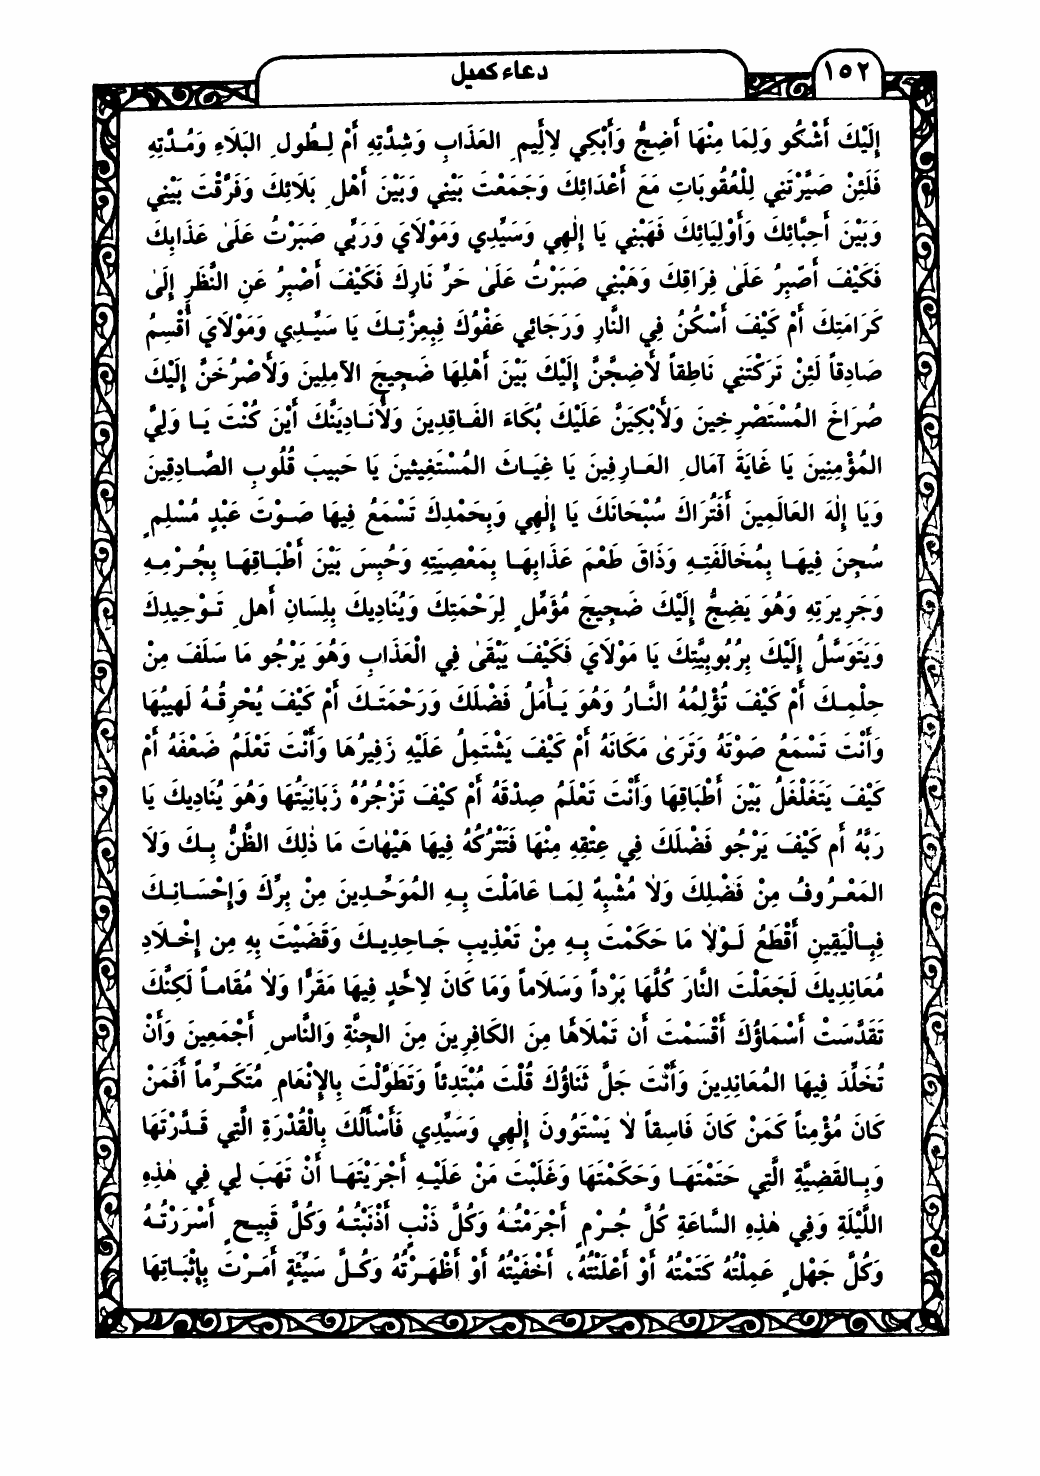 ١٥٢
دعاء كميل
إِلَيْكَ أَشْكُو وَلِمَا مِنْهَا أَضِجُّ وَأَبْكِي لِأَلِيمِ العَذَابِ وَشِدَّتِهِ أَمْ لِطُولِ البَلَاءِ وَمُدَّتِهِ
فَلَئِنْ صَيَّرْتَنِي لِلْعُقُوبَاتِ مَعَ أَعْدَائِكَ وَجَمَعْتَ بَيْنِي وَبَيْنَ أَهْلِ بَلَائِكَ وَفَرَّقْتَ بَيْنِي
وَبَيْنَ أَحِبَّائِكَ وَأَوْلِيَائِكَ فَهَبْنِي يَا إِلٰهِي وَسَيِّدِي وَمَوْلَايَ وَرَبِّي صَبَرْتُ عَلَىٰ عَذَابِكَ
فَكَيْفَ أَصْبِرُ عَلَىٰ فِرَاقِكَ وَهَبْنِي صَبَرْتُ عَلَىٰ حَرِّ نَارِكَ فَكَيْفَ أَصْبِرُ عَنِ النَّظَرِ إِلَىٰ
كَرَامَتِكَ أَمْ كَيْفَ أَسْكُنُ فِي النَّارِ وَرَجَائِي عَفْوُكَ فَبِعِزَّتِكَ يَا سَيِّدِي وَمَوْلَايَ أُقْسِمُ
صَادِقاً لَئِنْ تَرَكْتَنِي نَاطِقاً لَأَضِجَّنَّ إِلَيْكَ بَيْنَ أَهْلِهَا ضَجِيجَ الآمِلِينَ وَلَأَصْرُخَنَّ إِلَيْكَ
صُرَاخَ المُسْتَصْرِخِينَ وَلَأَبْكِيَنَّ عَلَيْكَ بُكَاءَ الفَاقِدِينَ وَلَأُنَادِيَنَّكَ أَيْنَ كُنْتَ يَا وَلِيَّ
المُؤْمِنِينَ يَا غَايَةَ آمَالِ العَارِفِينَ يَا غِيَاثَ المُسْتَغِيثِينَ يَا حَبِيبَ قُلُوبِ الصَّادِقِينَ
وَيَا إِلٰهَ العَالَمِينَ أَفَتُرَاكَ سُبْحَانَكَ يَا إِلٰهِي وَبِحَمْدِكَ تَسْمَعُ فِيهَا صَوْتَ عَبْدٍ مُسْلِمٍ
سُجِنَ فِيهَا بِمُخَالَفَتِهِ وَذَاقَ طَعْمَ عَذَابِهَا بِمَعْصِيَتِهِ وَحُبِسَ بَيْنَ أَطْبَاقِهَا بِجُرْمِهِ
وَجَرِيرَتِهِ وَهُوَ يَضِجُّ إِلَيْكَ ضَجِيجَ مُؤَمِّلٍ لِرَحْمَتِكَ وَيُنَادِيكَ بِلِسَانِ أَهلِ تَوْحِيدِكَ
وَيَتَوَسَّلُ إِلَيْكَ بِرُبُوبِيَّتِكَ يَا مَوْلَايَ فَكَيْفَ يَبْقَىٰ فِي الْعَذَابِ وَهُوَ يَرْجُو مَا سَلَفَ مِنْ
حِلْمِكَ أَمْ كَيْفَ تُؤْلِمُهُ النَّارُ وَهُوَ يَأْمَلُ فَضْلَكَ وَرَحْمَتَكَ أَمْ كَيْفَ يُحْرِقُهُ لَهِيبُهَا
وَأَنْتَ تَسْمَعُ صَوْتَهُ وَتَرَىٰ مَكَانَهُ أَمْ كَيْفَ يَشْتَمِلُ عَلَيْهِ زَفِيرُهَا وَأَنْتَ تَعْلَمُ ضَعْفَهُ أَمْ
كَيْفَ يَتَغَلْغَلُ بَيْنَ أَطْبَاقِهَا وَأَنْتَ تَعْلَمُ صِدْقَهُ أَمْ كَيْفَ تَزْجُرُهُ زَبَانِيَتُهَا وَهُوَ يُنَادِيكَ يَا
رَبَّهُ أَم كَيْفَ يَرْجُو فَضْلَكَ فِي عِتْقِهِ مِنْهَا فَتَتْرُكَهُ فِيهَا هَيْهَاتَ مَا ذٰلِكَ الظَّنُّ بِكَ وَلَا
المَعْرُوفُ مِنْ فَضْلِكَ وَلَا مُشْبِهٌ لِمَا عَامَلْتَ بِهِ المُوَحِّدِينَ مِنْ بِرِّكَ وَإِحْسَانِكَ
فَبِالْيَقِينِ أَقْطَعُ لَوْلَا مَا حَكَمْتَ بِهِ مِنْ تَعْذِيبِ جَاحِدِيكَ وَقَضَيْتَ بِهِ مِن إِخْلَادِ
مُعَانِدِيكَ لَجَعَلْتَ النَّارَ كُلَّهَا بَرْداً وَسَلَاماً وَمَا كَانَ لِأَحَدٍ فِيهَا مَقَرًّا وَلَا مُقَاماً لَكِنَّكَ
تَقَدَّسَتْ أَسْمَاؤُكَ أَقْسَمْتَ أَن تَمْلَأَهَا مِنَ الكَافِرِينَ مِنَ الجِنَّةِ وَالنَّاسِ أَجْمَعِينَ وَأَنْ
تُخَلِّدَ فِيهَا المُعَانِدِينَ وَأَنْتَ جَلَّ ثَنَاؤُكَ قُلْتَ مُبْتَدِئاً وَتَطَوَّلْتَ بِالإِنْعَامِ مُتَكَرِّماً أَفَمَنْ
كَانَ مُؤْمِناً كَمَنْ كَانَ فَاسِقاً لَا يَسْتَوُونَ إِلٰهِي وَسَيِّدِي فَأَسْأَلُكَ بِالْقُدْرَةِ الَّتِي قَدَّرْتَهَا
وَبِالقَضِيَّةِ الَّتِي حَتَمْتَهَا وَحَكَمْتَهَا وَغَلَبْتَ مَنْ عَلَيْهِ أَجْرَيْتَهَا أَنْ تَهَبَ لِي فِي هٰذِهِ
اللَّيْلَةِ وَفِي هٰذِهِ السَّاعَةِ كُلَّ جُرْمٍ أَجْرَمْتُهُ وَكُلَّ ذَنْبٍ أَذْنَبْتُهُ وَكُلَّ قَبِيحٍ أَسْرَرْتُهُ
وَكُلَّ جَهْلٍ عَمِلْتُهُ كَتَمْتُهُ أَوْ أَعْلَنْتُهُ، أَخْفَيْتُهُ أَوْ أَظْهَرْتُهُ وَكُلَّ سَيِّئَةٍ أَمَرْتَ بِإِثْبَاتِهَا